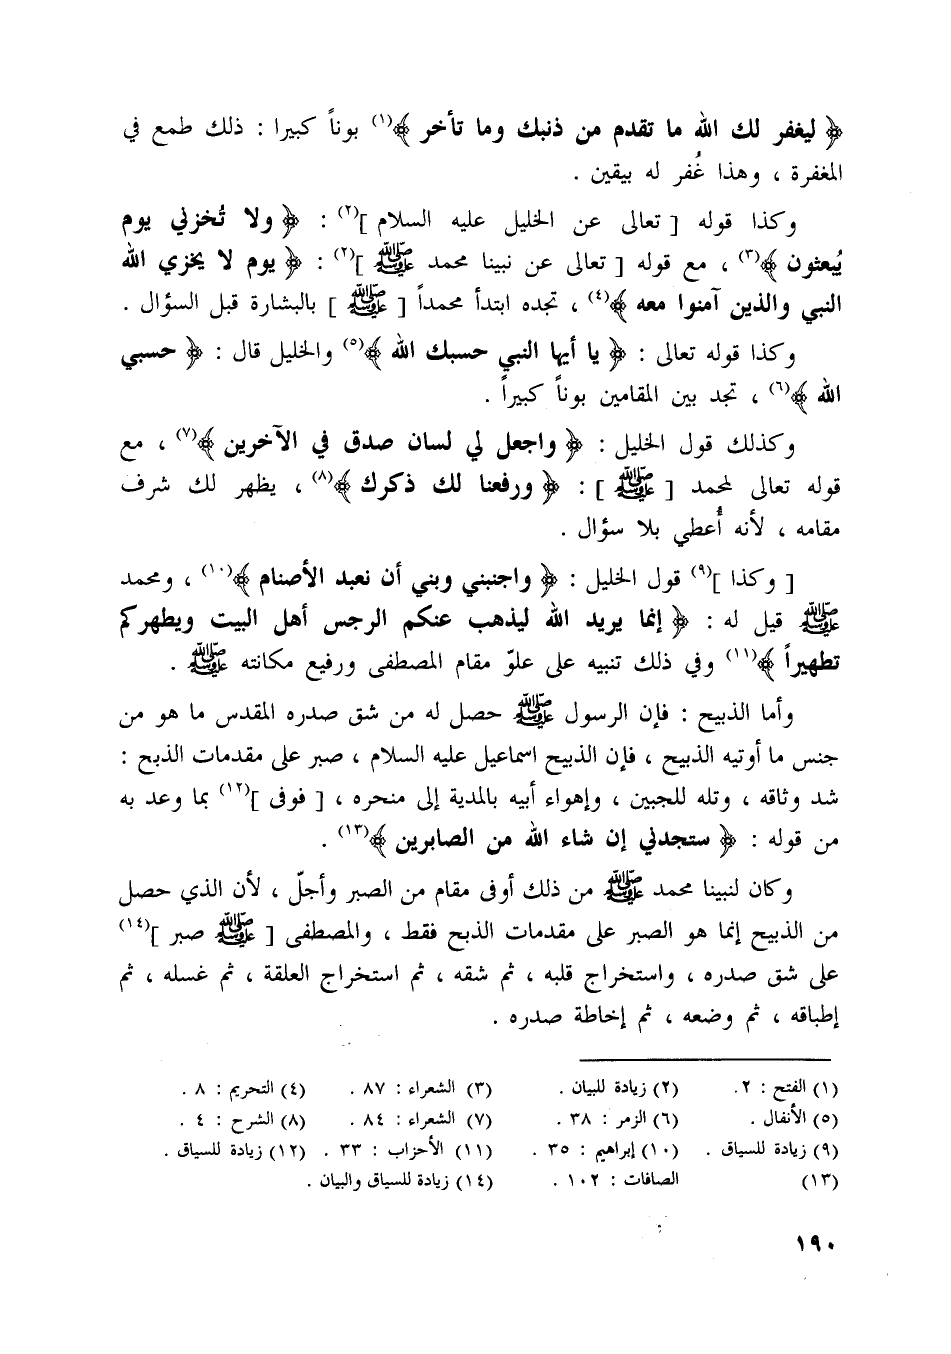 ﴿ ليغفر لك الله ما تقدم من ذنبك وما تأخر ﴾(١) بوناً كبيرا : ذلك طمع في
المغفرة ، وهذا غُفر له بيقين .
وكذا قوله [ تعالى عن الخليل عليه السلام ](٢) : ﴿ ولا تُخزني يوم
يُبعثون ﴾(٣) ، مع قوله [ تعالى عن نبينا محمد ﷺ ](٢) : ﴿ يوم لا يخزي الله
النبي والذين آمنوا معه ﴾(٤) ، تجده ابتدأ محمداً [ ﷺ ] بالبشارة قبل السؤال .
وكذا قوله تعالى : ﴿ يا أيها النبي حسبك الله ﴾(٥) والخليل قال : ﴿ حسبي
الله ﴾(٦) ، تجد بين المقامين بوناً كبيراً .
وكذلك قول الخليل : ﴿ واجعل لي لسان صدق في الآخرين ﴾(٧) ، مع
قوله تعالى لمحمد [ ﷺ ] : ﴿ ورفعنا لك ذكرك ﴾(٨) ، يظهر لك شرف
مقامه ، لأنه أُعطي بلا سؤال .
[ وكذا ](٩) قول الخليل : ﴿ واجنبني وبني أن نعبد الأصنام ﴾(١٠) ، ومحمد
ﷺ قيل له : ﴿ إنما يريد الله ليذهب عنكم الرجس أهل البيت ويطهركم
تطهيراً ﴾(١١) وفي ذلك تنبيه على علوّ مقام المصطفى ورفيع مكانته ﷺ .
وأما الذبيح : فإن الرسول ﷺ حصل له من شق صدره المقدس ما هو من
جنس ما أوتيه الذبيح ، فإن الذبيح اسماعيل عليه السلام ، صبر على مقدمات الذبح :
شد وثاقه ، وتله للجبين ، وإهواء أبيه بالمدية إلى منحره ، [ فوفى ](١٢) بما وعد به
من قوله : ﴿ ستجدني إن شاء الله من الصابرين ﴾(١٣) .
وكان لنبينا محمد ﷺ من ذلك أوفى مقام من الصبر وأجلّ ، لأن الذي حصل
من الذبيح إنما هو الصبر على مقدمات الذبح فقط ، والمصطفى [ ﷺ صبر ](١٤)
على شق صدره ، واستخراج قلبه ، ثم شقه ، ثم استخراج العلقة ، ثم غسله ، ثم
إطباقه ، ثم وضعه ، ثم إخاطة صدره .
(١) الفتح : ٢. (٢) زيادة للبيان . (٣) الشعراء : ٨٧ . (٤) التحريم : ٨ .
(٥) الأنفال . (٦) الزمر : ٣٨ . (٧) الشعراء : ٨٤ . (٨) الشرح : ٤ .
(٩) زيادة للسياق . (١٠) إبراهيم : ٣٥ . (١١) الأحزاب : ٣٣ . (١٢) زيادة للسياق .
(١٣) الصافات : ١٠٢ . (١٤) زيادة للسياق والبيان .
١٩٠